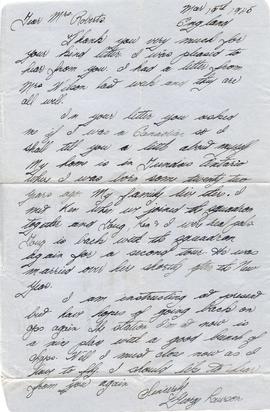 Mar 15th 1945
England
Dear Mrs Roberts
Thank you very much for
your kind letter. I was pleased to
hear from you. I had a letter from
Mrs Wilson last week and they are
all well.
In your letter you asked
me if I was a Canadian so I
shall tell you a bit about myself
My home is in Dundas Ontario
where I was born some twenty two
years ago. My family live there. I
met Ken when we joined the squadron
together and Doug, Ken & I were
Doug is back with the squadron
again for a second tour. He was
married over here shortly after the New
Year.
I am instructing at present
but have hopes of going back on
ops again. The station I'm at now is
a nice place with a good bunch of
chaps. Well I must close now as I
have to fly. I should like to hear
from you again
Sincerely
Lawson